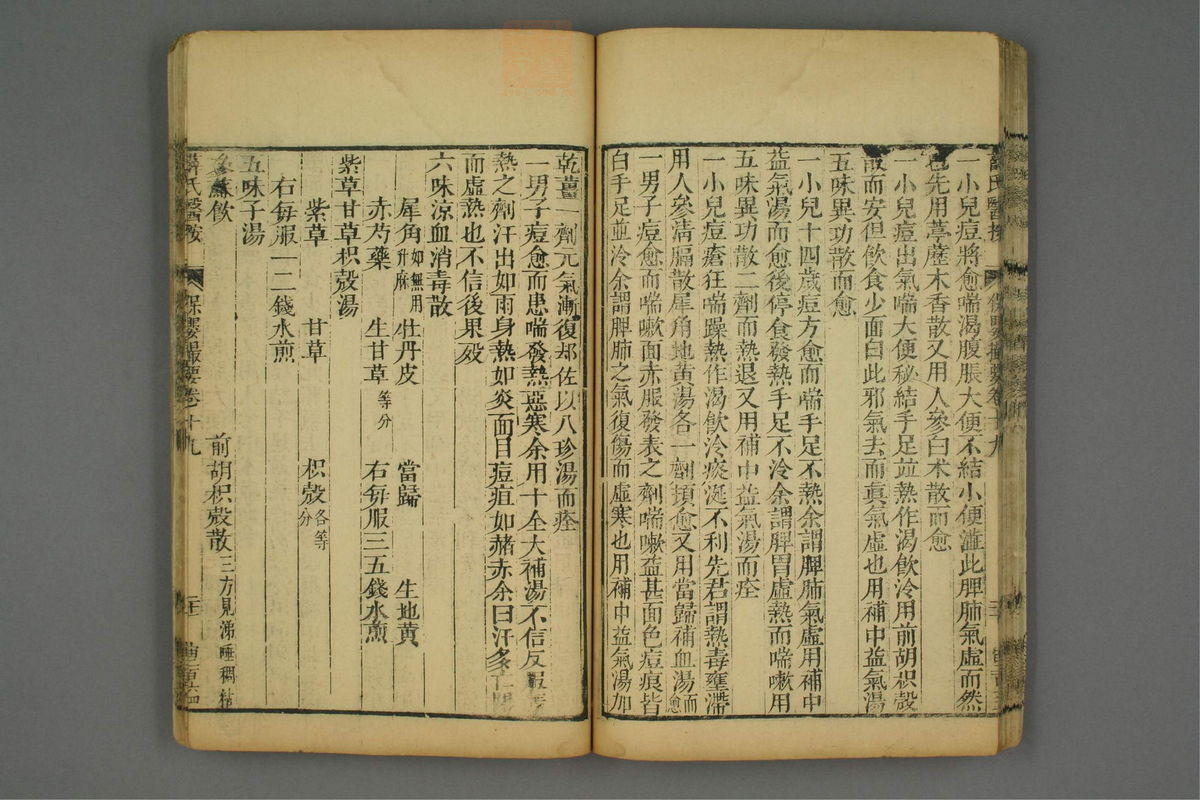 一小兒痘將愈喘渴腹脹大便不結小便澁此脾肺氣虛而然
也先用葶藶木香散又用人參白术散而愈
一小兒痘出氣喘大便秘結手足並熱作渴飲冷用前胡枳殼
散而安但飲食少面白此邪氣去而眞氣虛也用補中益氣湯
五味異功散而愈
一小兒十四歲痘方愈而喘手足不熱余謂脾肺氣虛用補中
益氣湯而愈後停食發熱手足不冷余謂脾胃虛熱而喘嗽用
五味異功散二劑而熱退又用補中益氣湯而痊
一小兒痘瘡狂喘躁熱作渴飲冷痰涎不利先君謂熱毒壅滯
用人參淸膈散犀角地黃湯各一劑頓愈又用當歸補血湯而愈
一男子痘愈而喘嗽面赤服發表之劑喘嗽益甚面色痘痕皆
白手足並冷余謂脾肺之氣復傷而虛寒也用補中益氣湯加
乾薑一劑元氣漸復却佐以八珍湯而痊
一男子痘愈而患喘發熱惡寒余用十全大補湯不信反服
熱之劑汗出如雨身熱如炎面目痘疽如赭赤余曰汗多亡陽
而虛熱也不信後果歿
六味涼血消毒散
犀角如無用升麻 牡丹皮 當歸 生地黃
赤芍藥 生甘草等分 右每服三五錢水煎
紫草甘草枳殼湯
紫草 甘草 枳殼各等分
右每服一二錢水煎
五味子湯
參蘇飲 前胡枳殼散三方見涕唾稠粘
薛氏醫按 保嬰撮要卷十九